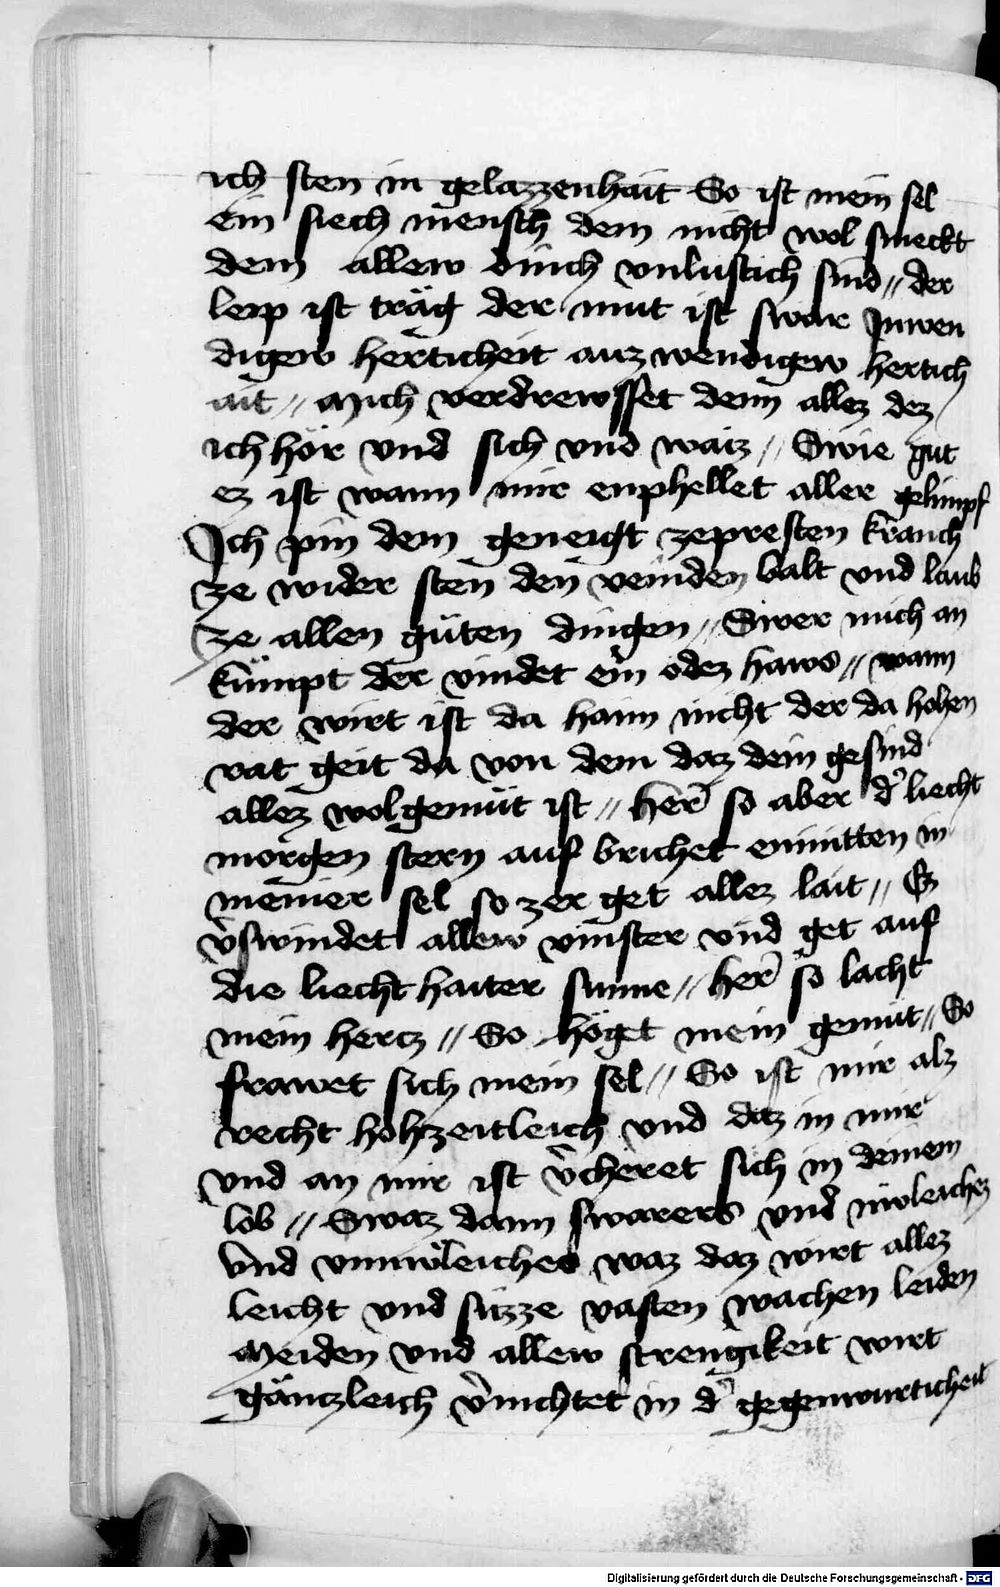 ich sten in gelazzenhait So ist mein sel
ein siech mensch dem nicht wol smeckt
dem allew dinch vnlustich sind // der
leip ist träg der mut ist swär Inwen
digew hertichheit auzwendigew hertich
ait // Mich verdrewsset denn allez dez
ich hör vnd sich vnd waiz // Swie gut
ez ist wann mir enphellet aller gelimpf
Ich pin dem geneigt zepresten kranch
ze wider sten den veinden balt vnd laub
ze allen güten dingen // Swer mich an
kümpt der vindet ein ödez haws // wann
der wirt ist da haim nicht der da hohen
rat geit da von dem daz dein gesind
allez wolgemüt ist // herr so aber d' liecht
morgen stern auf brichet enmitten in
meiner sel so zer get allez lait // Ez
v'swindet allew vinster vnd get auf
die liecht haiter sunne // herr so lacht
mein hercz // So höget mein gemüt // So
frawet sich mein sel // So ist mir alz
recht hohzeitleich vnd daz in mir
vnd an mir ist v'cheret sich in deinem
lob // Swaz dann swarers vnd müleichez
vnd vnmüleiches waz daz wirt allez
leicht vnd süzze vasten wachen leiden
Meiden vnd allew strengikeit wirt
gänzleich v'nichtet in d' gegenwurticheit
Digitalisierung gefördert durch die Deutsche Forschungsgemeinschaft - DFG